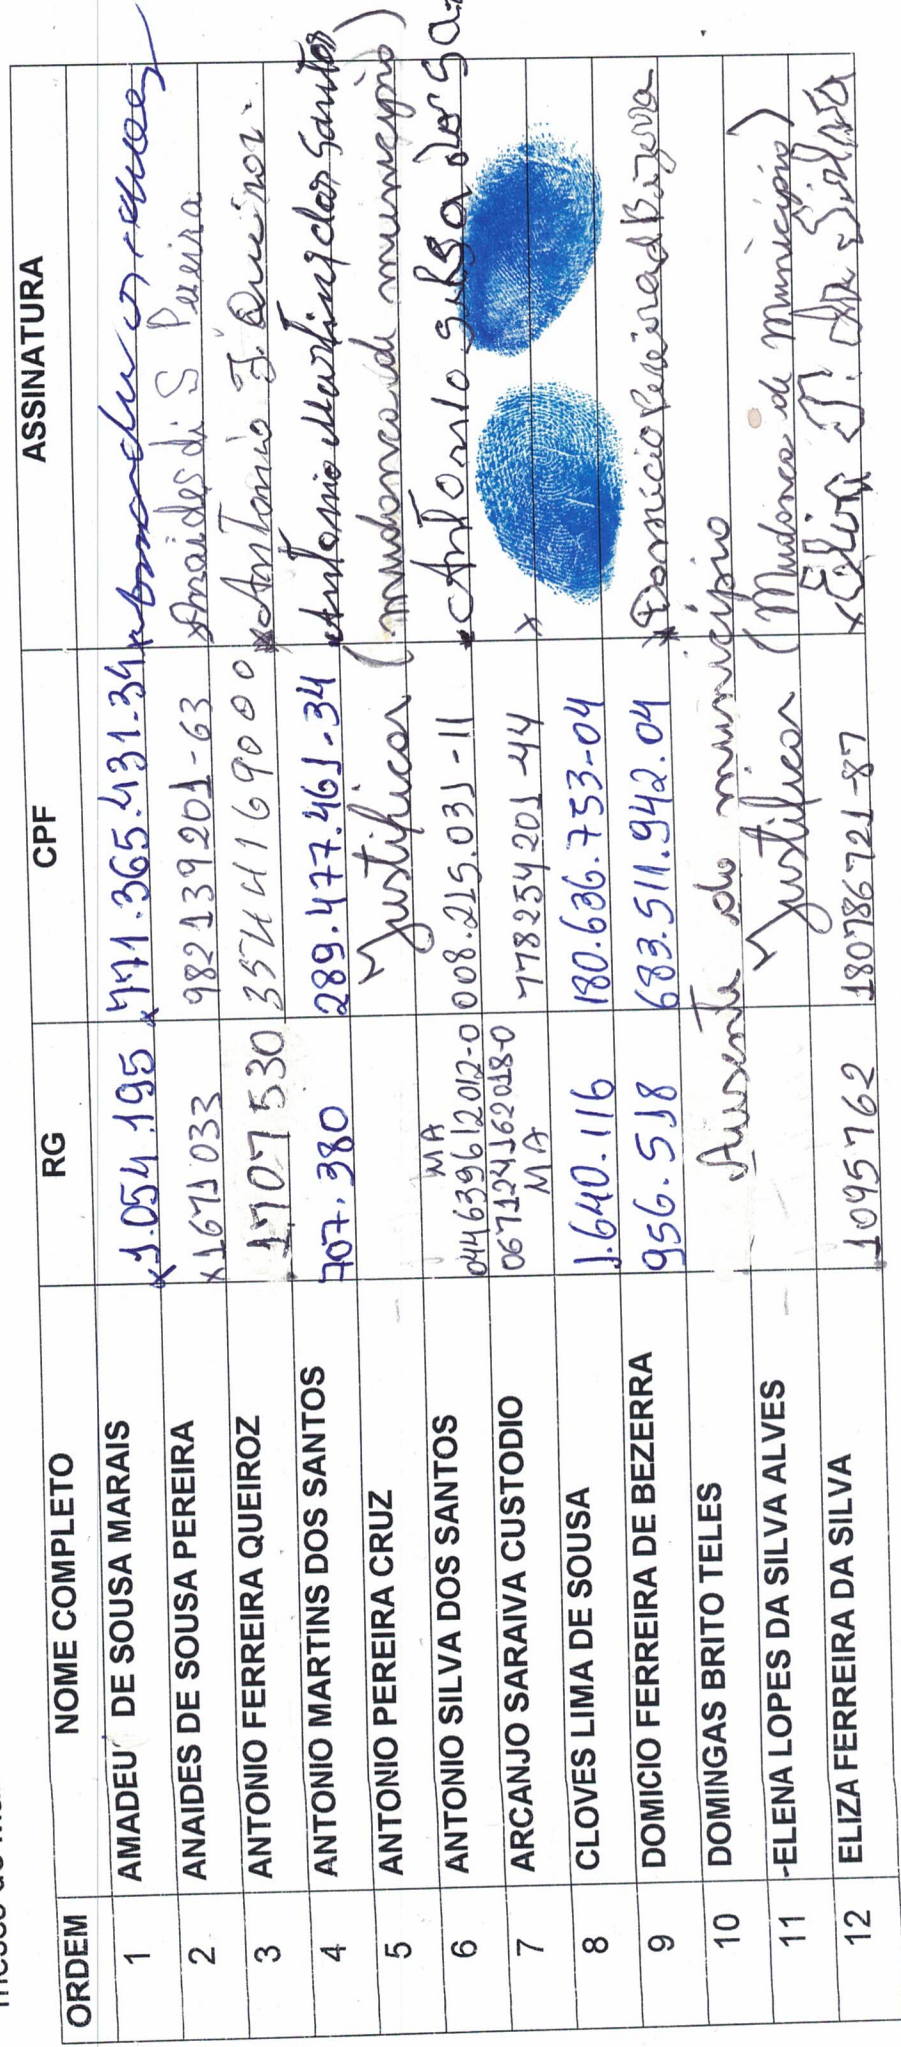 ORDEM NOME COMPLETO RG CPF ASSINATURA
1 AMADEU DE SOUSA MARAIS x1.054.195 x 771.365.431-34
2 ANAIDES DE SOUSA PEREIRA x1671033 982139201-63 xAnaides di S Pereira
3 ANTONIO FERREIRA QUEIROZ 1707530 35441169000 xAntonio J. Queiroz.
4 ANTONIO MARTINS DOS SANTOS 707.380 289.477.461-34 xAntonio Martins dos Santos
5 ANTONIO PEREIRA CRUZ Justificar (mudança de município)
6 ANTONIO SILVA DOS SANTOS MA 044639612012-0 008.215.031-11 Antonio silva dos sa
7 ARCANJO SARAIVA CUSTODIO 067124162018-0 MA 778254201-44 x
8 CLOVES LIMA DE SOUSA 1.640.116 180.636.753-04
9 DOMICIO FERREIRA DE BEZERRA 956.518 683.511.942.04 x Domicio Pereirad Bizerra
10 DOMINGAS BRITO TELES Ausente do município
11 -ELENA LOPES DA SILVA ALVES Justificar (Mudança de Município)
12 ELIZA FERREIRA DA SILVA 1095762 180786721-87 x Eliza F. da Silva